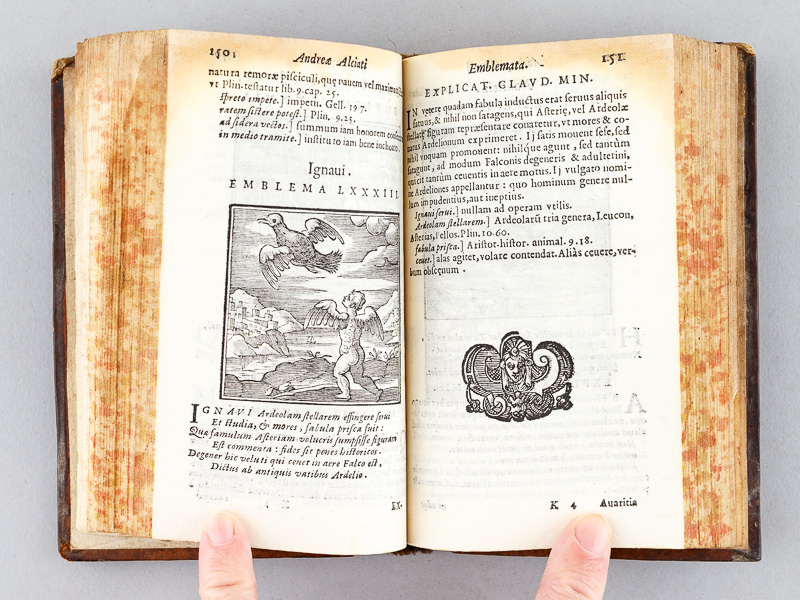 150;
Andreæ Alciati
natura remoræ pisciculi, quę nauem vel maximā
vt Plin. testatur lib. 9. cap. 25.
Spreto impete.] impetu. Gell. 19 7.
ratem sistere potest.] Plin. 9. 25.
ad sidera vectos.] summum iam honorem
in medio tramite.] instituto iam bene inchoato.
Ignaui.
EMBLEMA LXXXIII.
IGNAVI Ardeolam stellarem effingere serui
Et studia, & mores, fabula prisca fuit:
Quæ famulum Asteriam volucris sumpsisse figuram
Est commenta: fides sit penes historicos.
Degener hic veluti qui ceuet in aere Falco est,
Dictus ab antiquis vatibus Ardelio.
EX-
Emblemata.
151.
EXPLICAT. CLAVD. MIN.
IN vetere quadam fabula inductus erat seruus aliquis
fatuus, & nihil non satagens, qui Asterię, vel Ardeolæ
stellaris figuram repræsentare conaretur, vt mores & co-
natus Ardelionum exprimeret. Ij satis mouent sese, sed
nihil vnquam promouent: nihilque agunt, sed tantùm
satagunt, ad modum Falconis degeneris & adulterini,
qui cit tantùm ceuentis in aere motus. Ij vulgato nomi-
ne Ardeliones appellantur: quo hominum genere nul-
lum impudentius, aut ineptius.
Ignaui serui.] nullam ad operam vtilis.
Ardeolam stellarem.] Ardeolarū tria genera, Leucon,
Asterias, Pellos. Plin. 10. 60.
fabula prisca.] Aristot. histor. animal. 9. 18.
ceuet.] alas agitet, volare contendat. Aliàs ceuere, ver-
bum obscęnum.
K 4 Auaritia